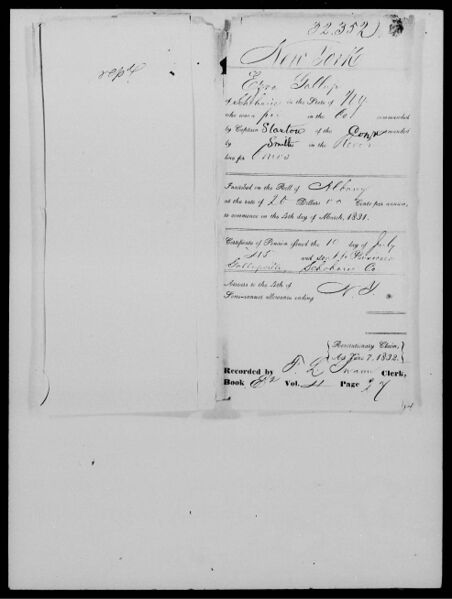 32.352
New York
Ezra Gallup
of Schoharie in the State of NY
who was a in the Co commanded
by Captain Stanton of the Conn commanded
by Smith in the
line for mos
Inscribed on the Roll of Albany
at the rate of 20 Dollars 00 Cents per annum,
to commence on the 4th day of March, 1831.
Certificate of Pension issued the 10 day of July
and
Gallupville, Schoharie Co
Arrears to the 4th of N.Y.
Semi-annual allowance ending
Revolutionary Claim,
Act June 7, 1832.
Recorded by Clerk,
Book E2 Vol. Page 27